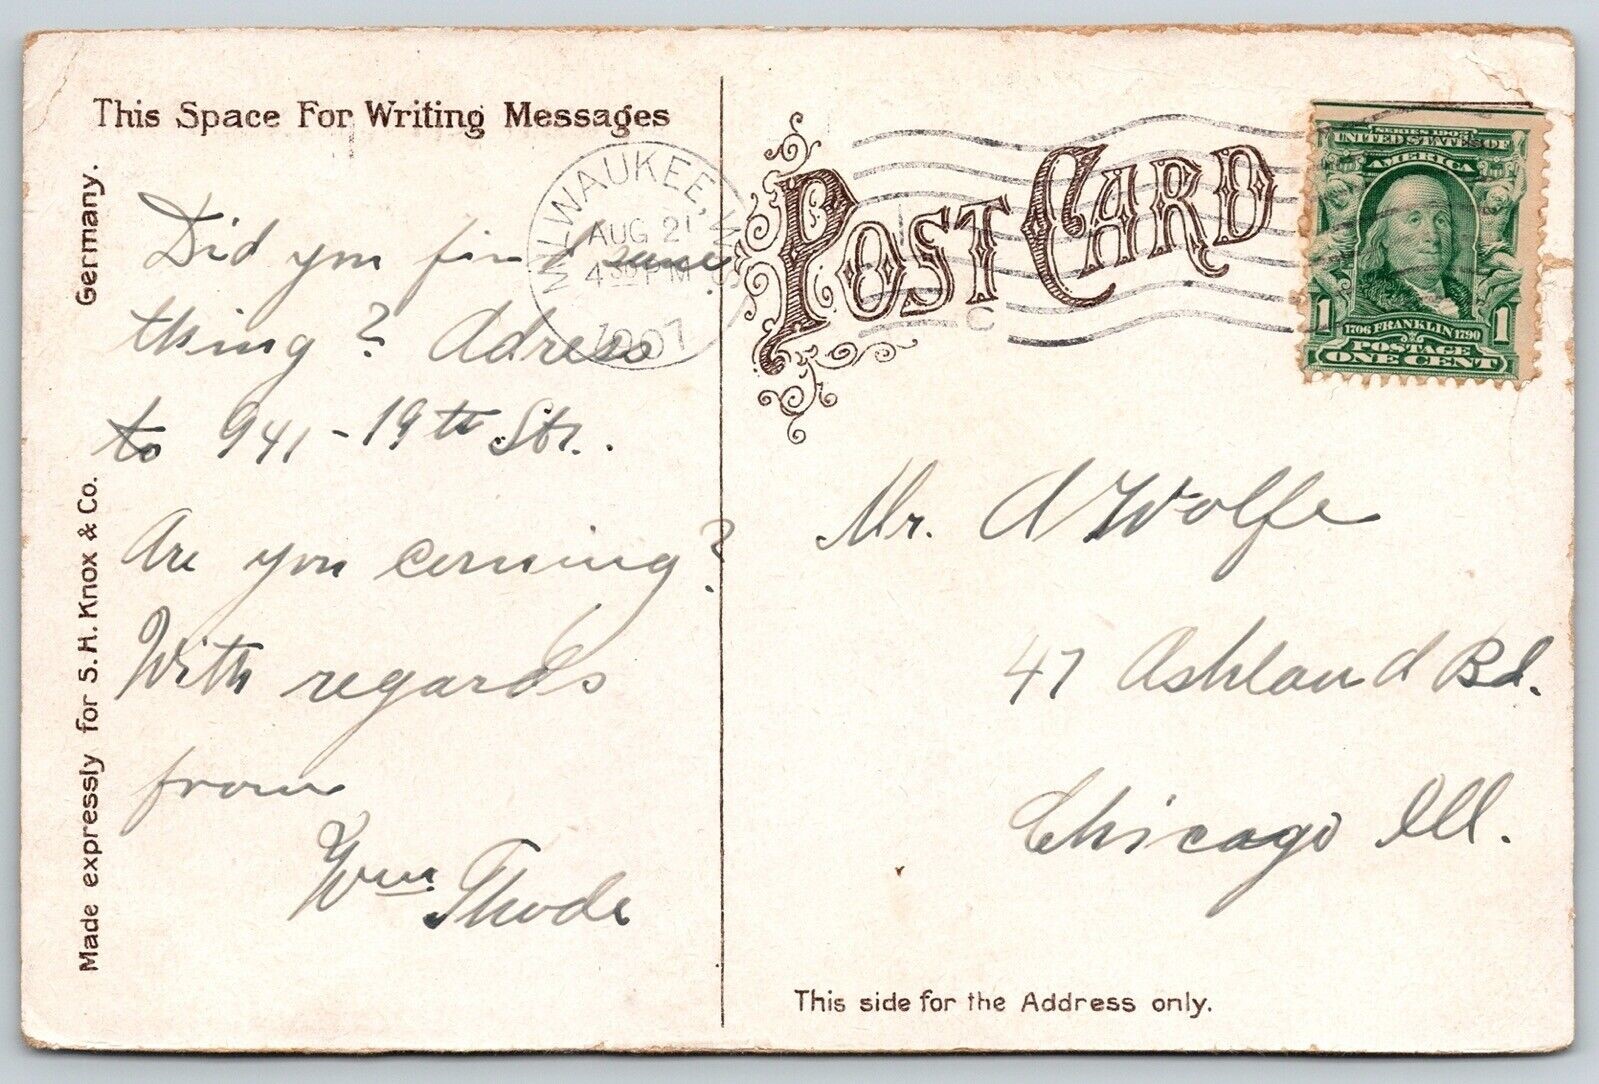 This Space For Writing Messages
Germany.
Made expressly for S. H. Knox & Co.
MILWAUKEE, WIS
AUG 21
4 30 PM
1907
Did you find some
thing? Adress
to 941-19th Str.
Are you coming?
With regards
from
Wm Thode
POST CARD
C
SERIES 1902
UNITED STATES OF
AMERICA
1 1
1706 FRANKLIN 1790
POSTAGE
ONE CENT
Mr. A Wolfe
47 Ashland Bd.
Chicago Ill.
This side for the Address only.